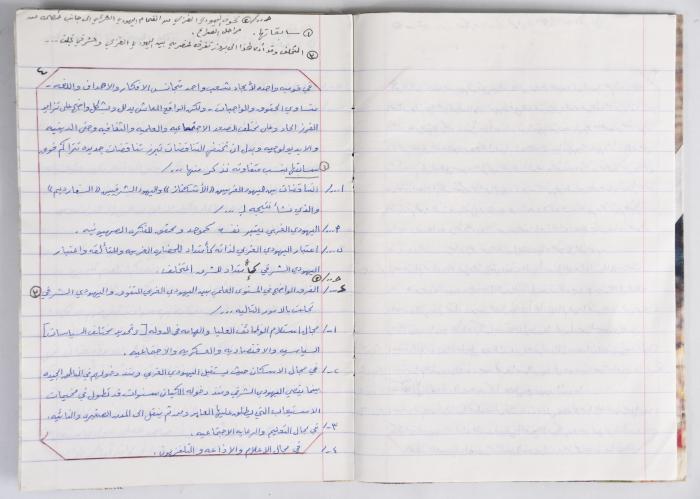 حـ../ تخوف اليهودي الغربي من انضمام اليهودي الشرقي الى جانب
① سابقاتها. مراحل الصراع.
② التخلف وقد أدى هذا الى بروز تفرقه عنصريه بين اليهودي الغربي والشرقي
٤
في قوميه واحده لأيجاد شعب واحد متجانس الافكار والاهداف واللغه -
متساوي الحقوق والواجبات - ولكن الواقع المعاش يدلل وبشكل واضح على تزايد
الفرز الحاد وعلى مختلف الصعد الاجتماعيه والعلميه والثقافيه وحتى الدينيه
والايديولوجيه وبدل ان تختفي التناقضات تبرز تناقضات جديده تتراكم فوق
① بنسب متفاوته نذكر منها .../
أ../ التناقضات بين اليهود الغربيين "الأشكناز" واليهود الشرقيين "السفارديم"
والذي نشأ نتيجه لـ .../
اليهودي الغربي يعتبر نفسه كموجد ومحقق للفكره الصهيونيه.
ب../ اعتبار اليهودي الغربي لذاته كأمتداد للحضاره الغربيه والمتألقه واعتبار
اليهودي الشرقي كأمتداد للشرق المتخلف.
حـ../
الفرق الواضح في المستوى العلمي بين اليهودي الغربي المتفوق واليهودي الشرقي ②
بالامور التاليه .../
١-/ مجال استلام الوظائف العليا والهامه في الدوله [وتحديد مختلف السياسات]
السياسيه والاقتصاديه والعسكريه والاجتماعيه.
٢-/ في مجال الاسكان حيث يستقبل اليهودي الغربي ومنذ دخوله في المناطق الجيده
بينما يقضي اليهودي الشرقي ومنذ دخوله للكيان سنوات قد تطول في مخيمات
الاستيعاب التي يطلق عليها المعابر ومن ثم ينقل الى المدن الصغيره والنائيه.
٣-/ في مجال التعليم والرعايه الاجتماعيه.
٤-/ في مجال الاعلام والاذاعه والتلفزيون.